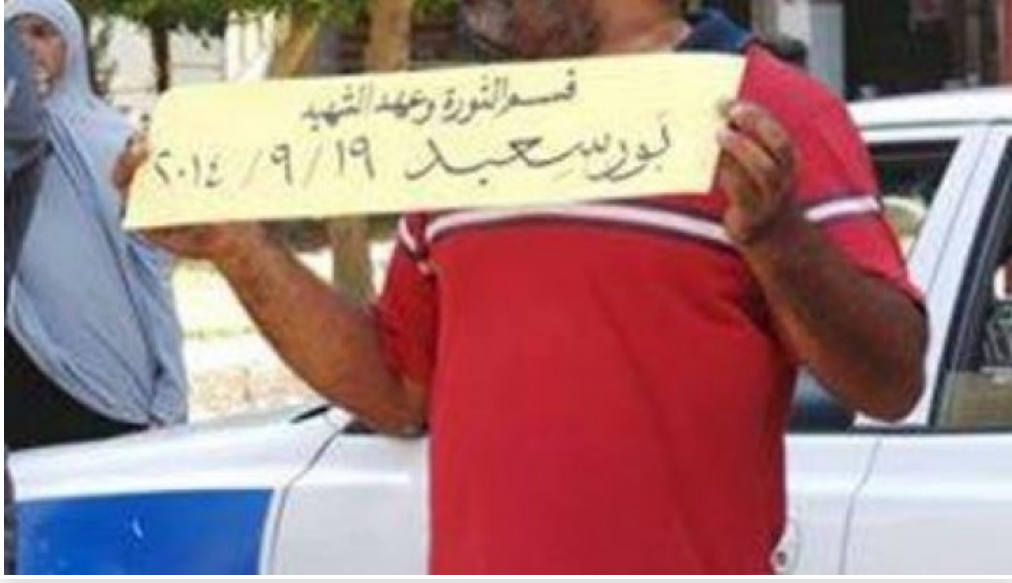 قسم الثورة وعهد الشهيد
بورسعيد ١٩/٩/٢٠١٤